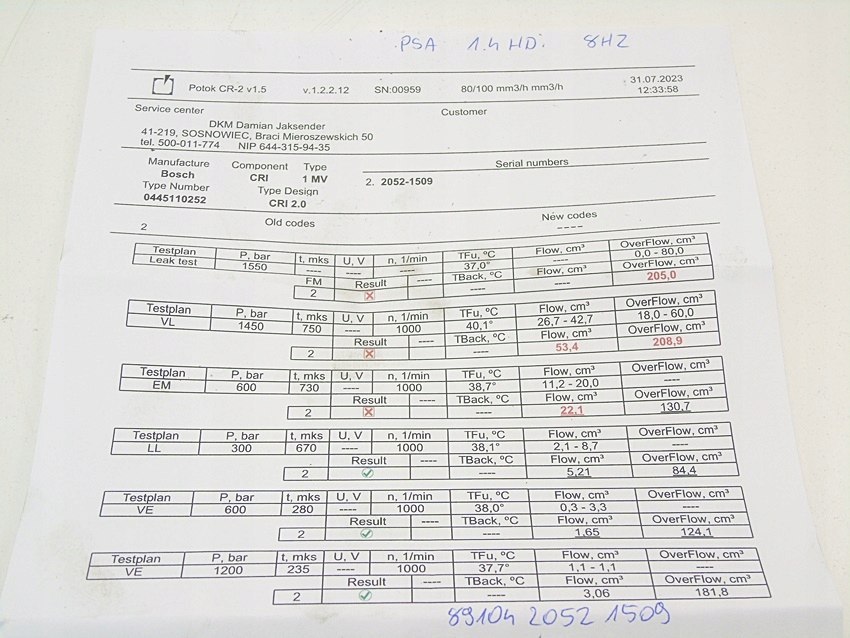 PSA 1.4 HDi 8HZ
Potok CR-2 v1.5 v.1.2.2.12 SN:00959 80/100 mm3/h mm3/h 31.07.2023 12:33:58
Service center Customer
DKM Damian Jaksender
41-219, SOSNOWIEC, Braci Mieroszewskich 50
tel. 500-011-774 NIP 644-315-94-35
Manufacture Component Type Serial numbers
Bosch CRI 1 MV 2. 2052-1509
Type Number Type Design
0445110252 CRI 2.0
Old codes New codes
2 ----
Testplan P, bar t, mks U, V n, 1/min TFu, ºC Flow, cm³ OverFlow, cm³
Leak test 1550 ---- ---- ---- 37,0° ---- 0,0 - 80,0
FM Result ---- TBack, ºC Flow, cm³ OverFlow, cm³
2 ---- 205,0
Testplan P, bar t, mks U, V n, 1/min TFu, ºC Flow, cm³ OverFlow, cm³
VL 1450 750 ---- 1000 40,1° 26,7 - 42,7 18,0 - 60,0
Result ---- TBack, ºC Flow, cm³ OverFlow, cm³
2 ---- 53,4 208,9
Testplan P, bar t, mks U, V n, 1/min TFu, ºC Flow, cm³ OverFlow, cm³
EM 600 730 ---- 1000 38,7° 11,2 - 20,0 ----
Result ---- TBack, ºC Flow, cm³ OverFlow, cm³
2 ---- 22,1 130,7
Testplan P, bar t, mks U, V n, 1/min TFu, ºC Flow, cm³ OverFlow, cm³
LL 300 670 ---- 1000 38,1° 2,1 - 8,7 ----
Result ---- TBack, ºC Flow, cm³ OverFlow, cm³
2 ---- 5,21 84,4
Testplan P, bar t, mks U, V n, 1/min TFu, ºC Flow, cm³ OverFlow, cm³
VE 600 280 ---- 1000 38,0° 0,3 - 3,3 ----
Result ---- TBack, ºC Flow, cm³ OverFlow, cm³
2 ---- 1,65 124,1
Testplan P, bar t, mks U, V n, 1/min TFu, ºC Flow, cm³ OverFlow, cm³
VE 1200 235 ---- 1000 37,7° 1,1 - 1,1 ----
Result ---- TBack, ºC Flow, cm³ OverFlow, cm³
2 ---- 3,06 181,8
89104 2052 1509